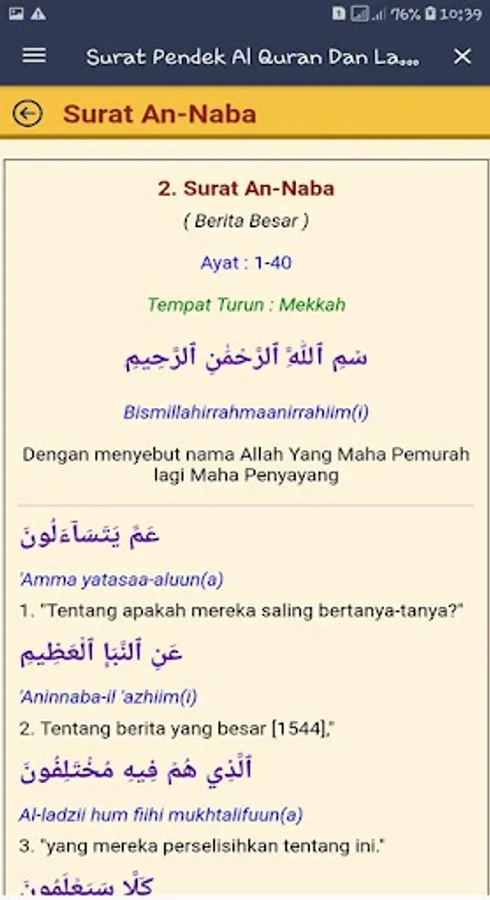 76% 10:39
Surat Pendek Al Quran Dan La...
Surat An-Naba
2. Surat An-Naba
( Berita Besar )
Ayat : 1-40
Tempat Turun : Mekkah
سْمِ ٱللَّهِ ٱلرَّحْمَٰنِ ٱلرَّحِيمِ
Bismillahirrahmaanirrahiim(i)
Dengan menyebut nama Allah Yang Maha Pemurah
lagi Maha Penyayang
عَمَّ يَتَسَآءَلُونَ
'Amma yatasaa-aluun(a)
1. "Tentang apakah mereka saling bertanya-tanya?"
عَنِ ٱلنَّبَإِ ٱلْعَظِيمِ
'Aninnaba-il 'azhiim(i)
2. Tentang berita yang besar [1544],"
ٱلَّذِي هُمْ فِيهِ مُخْتَلِفُونَ
Al-ladzii hum fiihi mukhtalifuun(a)
3. "yang mereka perselisihkan tentang ini."
كَلَّا سَيَعْلَمُونَ